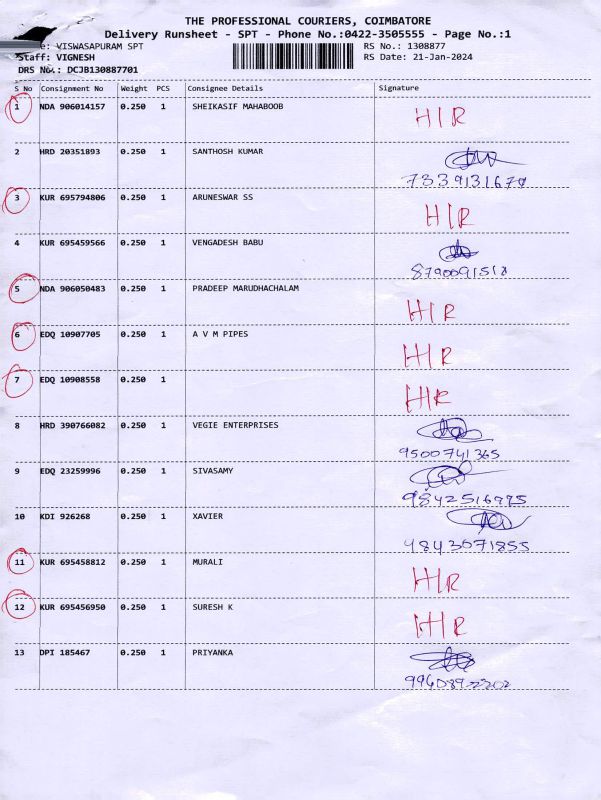 THE PROFESSIONAL COURIERS, COIMBATORE
Delivery Runsheet - SPT - Phone No.:0422-3505555 - Page No.:1
e: VISWASAPURAM SPT RS No.: 1308877
Staff: VIGNESH RS Date: 21-Jan-2024
DRS No.: DCJB130887701
S No Consignment No Weight PCS Consignee Details Signature
1 NDA 906014157 0.250 1 SHEIKASIF MAHABOOB HIR
2 HRD 20351893 0.250 1 SANTHOSH KUMAR
3 KUR 695794806 0.250 1 ARUNESWAR SS HIR
4 KUR 695459566 0.250 1 VENGADESH BABU
5 NDA 906050483 0.250 1 PRADEEP MARUDHACHALAM HIR
6 EDQ 10907705 0.250 1 A V M PIPES HIR
7 EDQ 10908558 0.250 1 HIR
8 HRD 390766082 0.250 1 VEGIE ENTERPRISES
9500741365
9 EDQ 23259996 0.250 1 SIVASAMY
10 KDI 926268 0.250 1 XAVIER
11 KUR 695458812 0.250 1 MURALI HIR
12 KUR 695456950 0.250 1 SURESH K HIR
13 DPI 185467 0.250 1 PRIYANKA